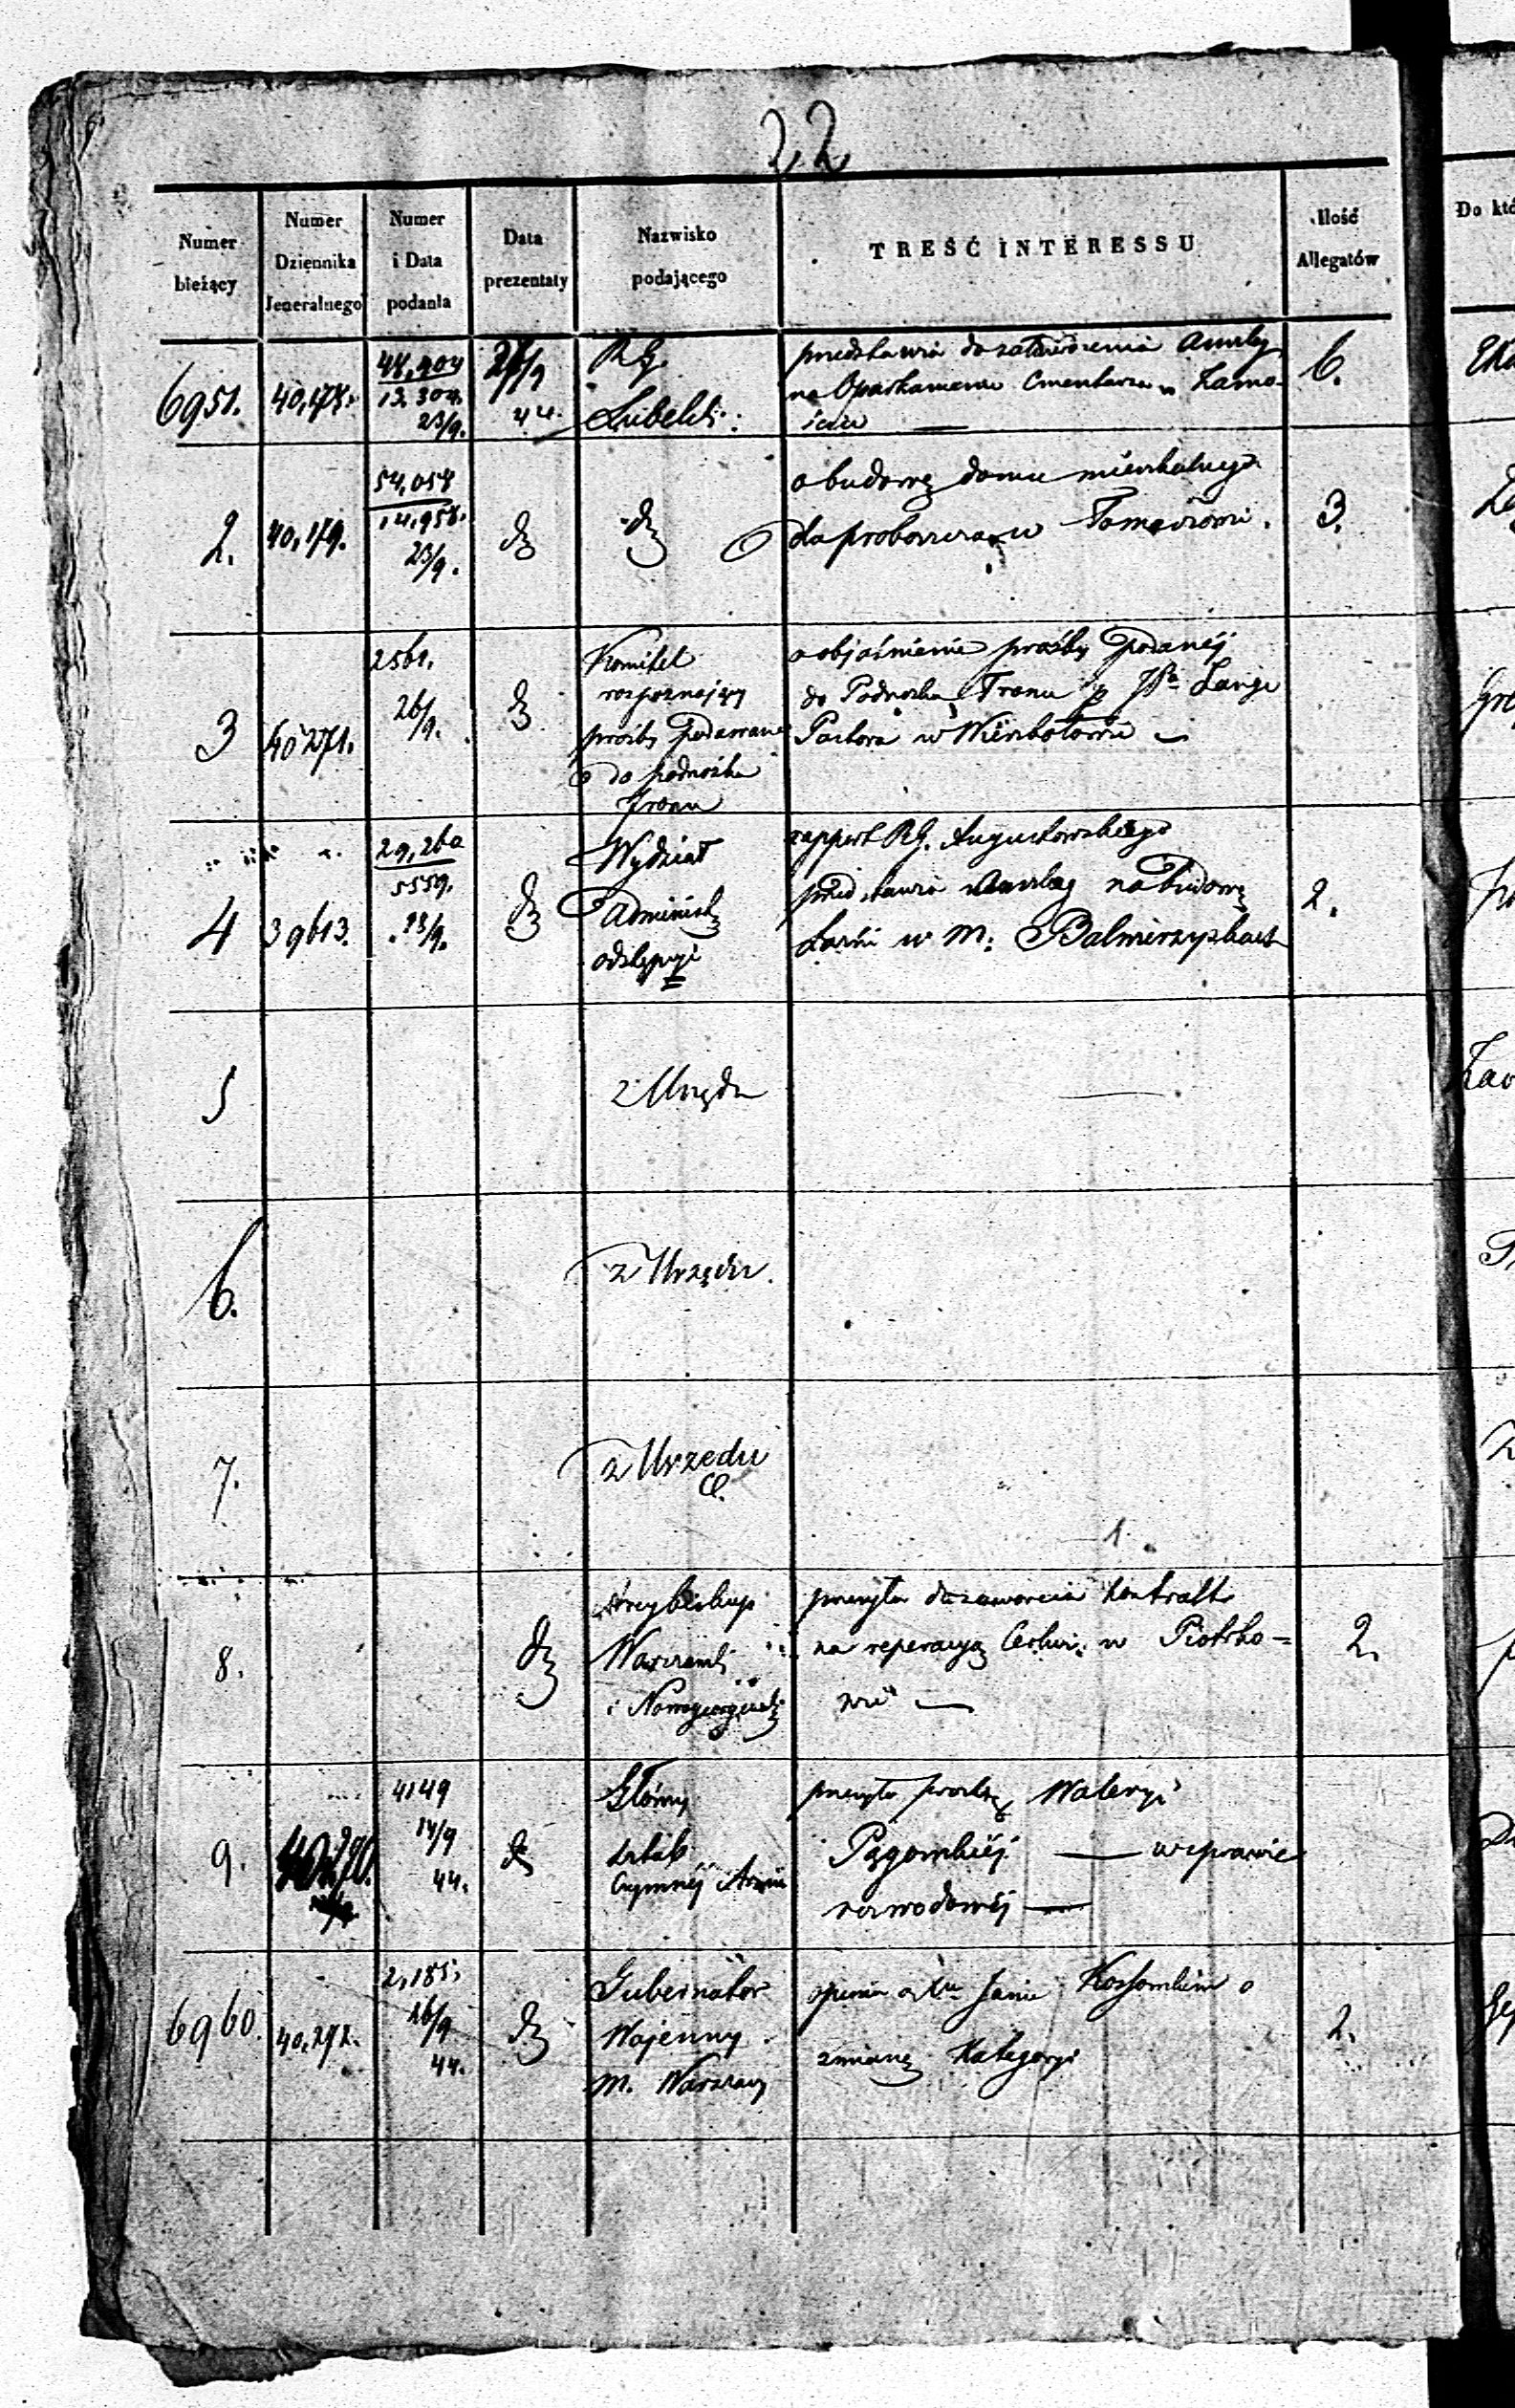 22
Numer bieżący
Numer Dziennika Jeneralnego
Numer i Data podania
Data prezentaty
Nazwisko podającego
TREŚĆ INTERESSU
Ilość Allegatów
Do któ
6951.
40,178.
48,904
13.304.
23/9.
26/9
44.
R.G.
Lubelski
przedstawia do zatwierdzenia Anszlag
na Oparkanienie Cmentarza w Zamo-
ściu —
6.
2.
40,179.
54,058
14,958.
23/9.
o budowę domu mieszkalnego
dla proboszcza w Tomaszowie.
3.
3
40271.
2561.
26/9.
Komitet
rozpoznający
prośby podawane
do podnóżka
Tronu
o objaśnienie prośby podanej
do Podnóżka Tronu p Lange
Pastora w Wierzbołowie —
4
39613.
29,260
5559.
23/9.
Wydział
Administ
odstępuje
rapport R.G. Augustowskiego
przedstawia Anszlag na budowę
Łaźni w m: Balwierzyszkach
2.
5
z Urzędu
6.
z Urzędu
7.
z Urzędu
8.
Arcybiskup
Warszawski
i Nowogeorgiewski
przesyła do zawarcia kontrakt
na reperacyą Cerkwi w Piotrko=
wie —
2.
9.
4149
14/9
44.
Główny
Sztab
Czynnej Armii
przesyła prośbę Waleryi
Pągowskiej — w sprawie
rozwodowej —
6960.
40,272.
2,185,
26/9
44.
Gubernator
Wojenny
m. Warszawy
opinia o Janie Kossowskim o
zmianę Kategoryi
2.